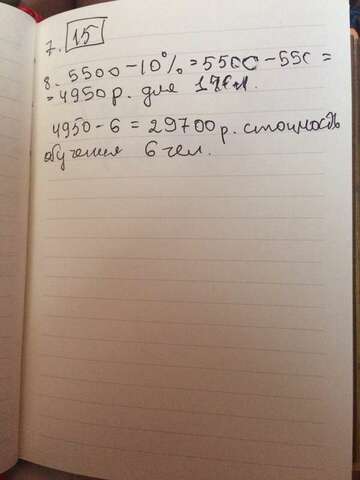 7. 15
8. 5500-10%=5500-550=
=4950 р. для 1 чел.
4950-6=29700 р. стоимость
обучения 6 чел.